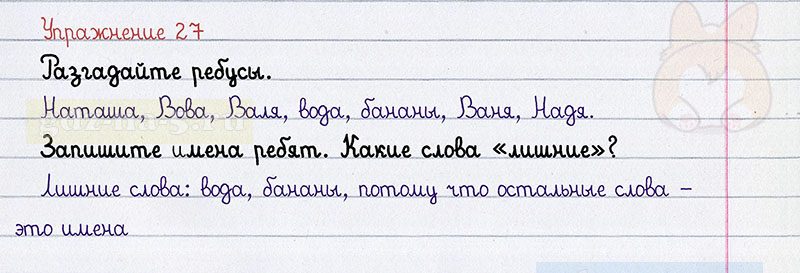 Упражнение 27
Разгадайте ребусы.
Наташа, Вова, Валя, вода, бананы, Ваня, Надя.
Запишите имена ребят. Какие слова «лишние»?
Лишние слова: вода, бананы, потому что остальные слова –
это имена